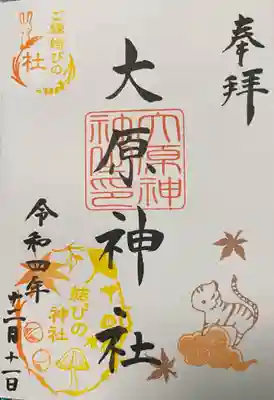 奉拝
大原神社
大原神社印
令和四年
十二月十一日
ご縁結びの
社
結びの
神社